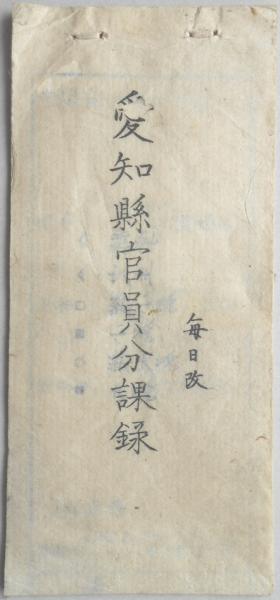 愛知縣官員分課録
每日改